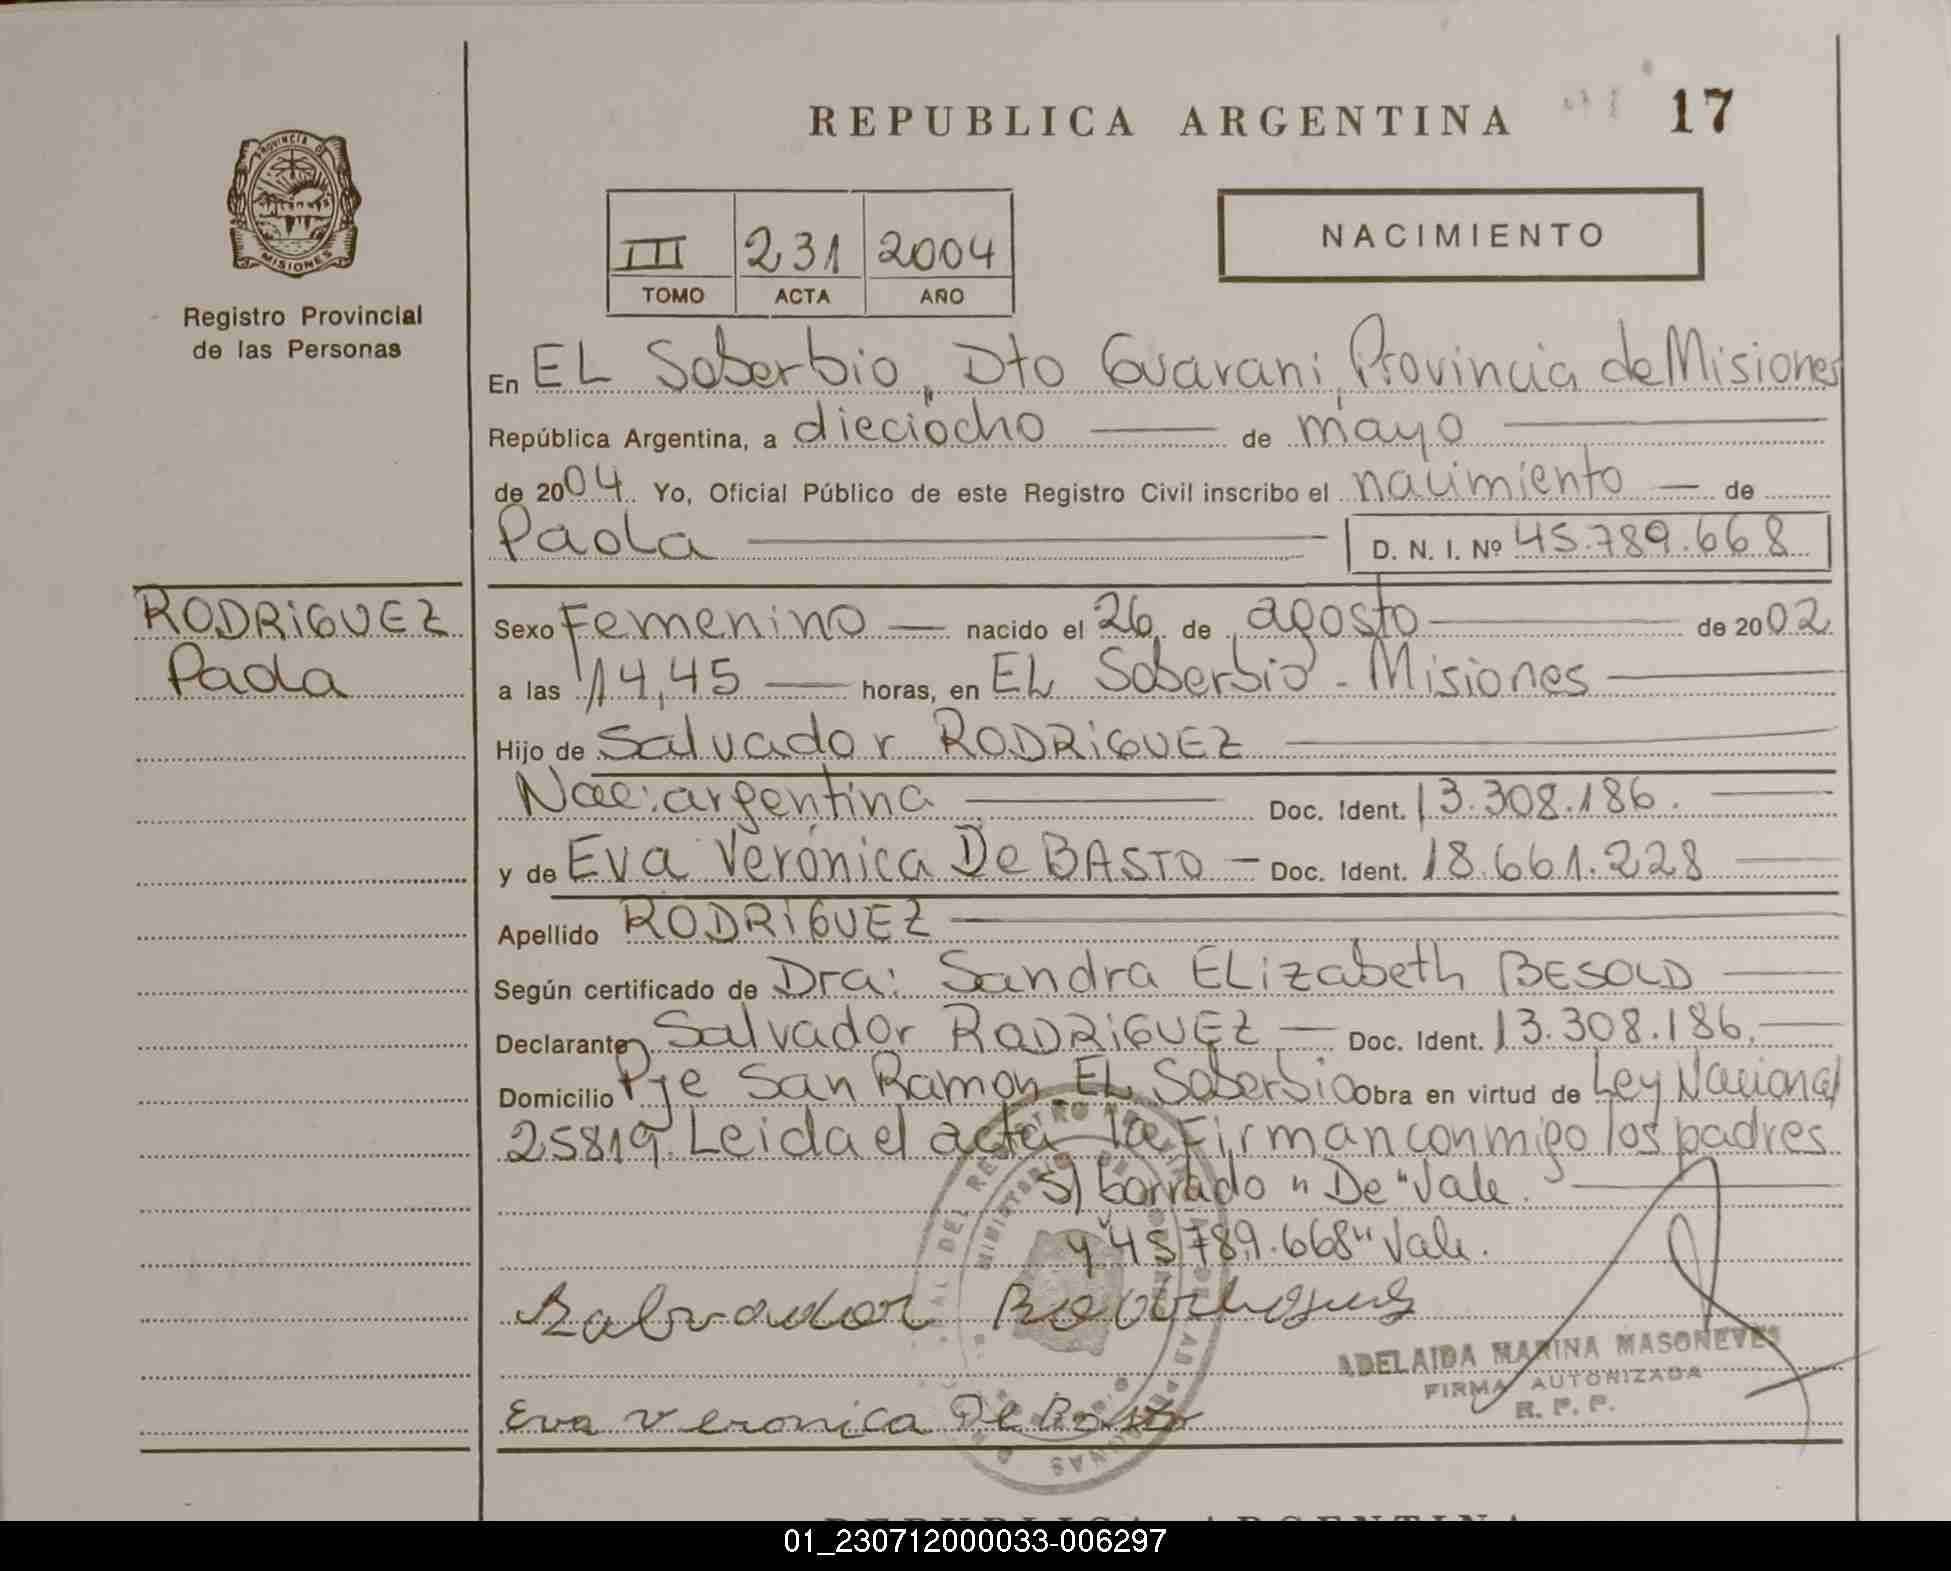 REPUBLICA ARGENTINA 17
PROVINCIA DE
MISIONES
Registro Provincial
de las Personas
III 231 2004
TOMO ACTA AÑO
NACIMIENTO
En EL Soberbio, Dto Guarani, Provincia de Misiones
República Argentina, a dieciocho de mayo
de 2004. Yo, Oficial Público de este Registro Civil inscribo el nacimiento de
Paola D. N. I. Nº 45.789.668
RODRIGUEZ
Paola
Sexo Femenino nacido el 26 de agosto de 2002
a las 14,45 horas, en EL Soberbio - Misiones
Hijo de Salvador RODRIGUEZ
Nac: argentina Doc. Ident. 13.308.186.
y de Eva Verónica De BASTO Doc. Ident. 18.661.228
Apellido RODRIGUEZ
Según certificado de Dra: Sandra ELizabeth BESOLD
Declarante Salvador RODRIGUEZ Doc. Ident. 13.308.186.
Domicilio Pje San Ramon. EL Soberbio Obra en virtud de Ley Nacional
25819. Leida el acta la firman conmigo los padres
s/ borrado "De" Vale.
y "45789.668" Vale.
Salvador Rodriguez
ADELAIDA MARINA MASONEVES
FIRMA AUTORIZADA
R. P. P.
Eva veronica De Basto
REPUBLICA ARGENTINA
01_230712000033-006297